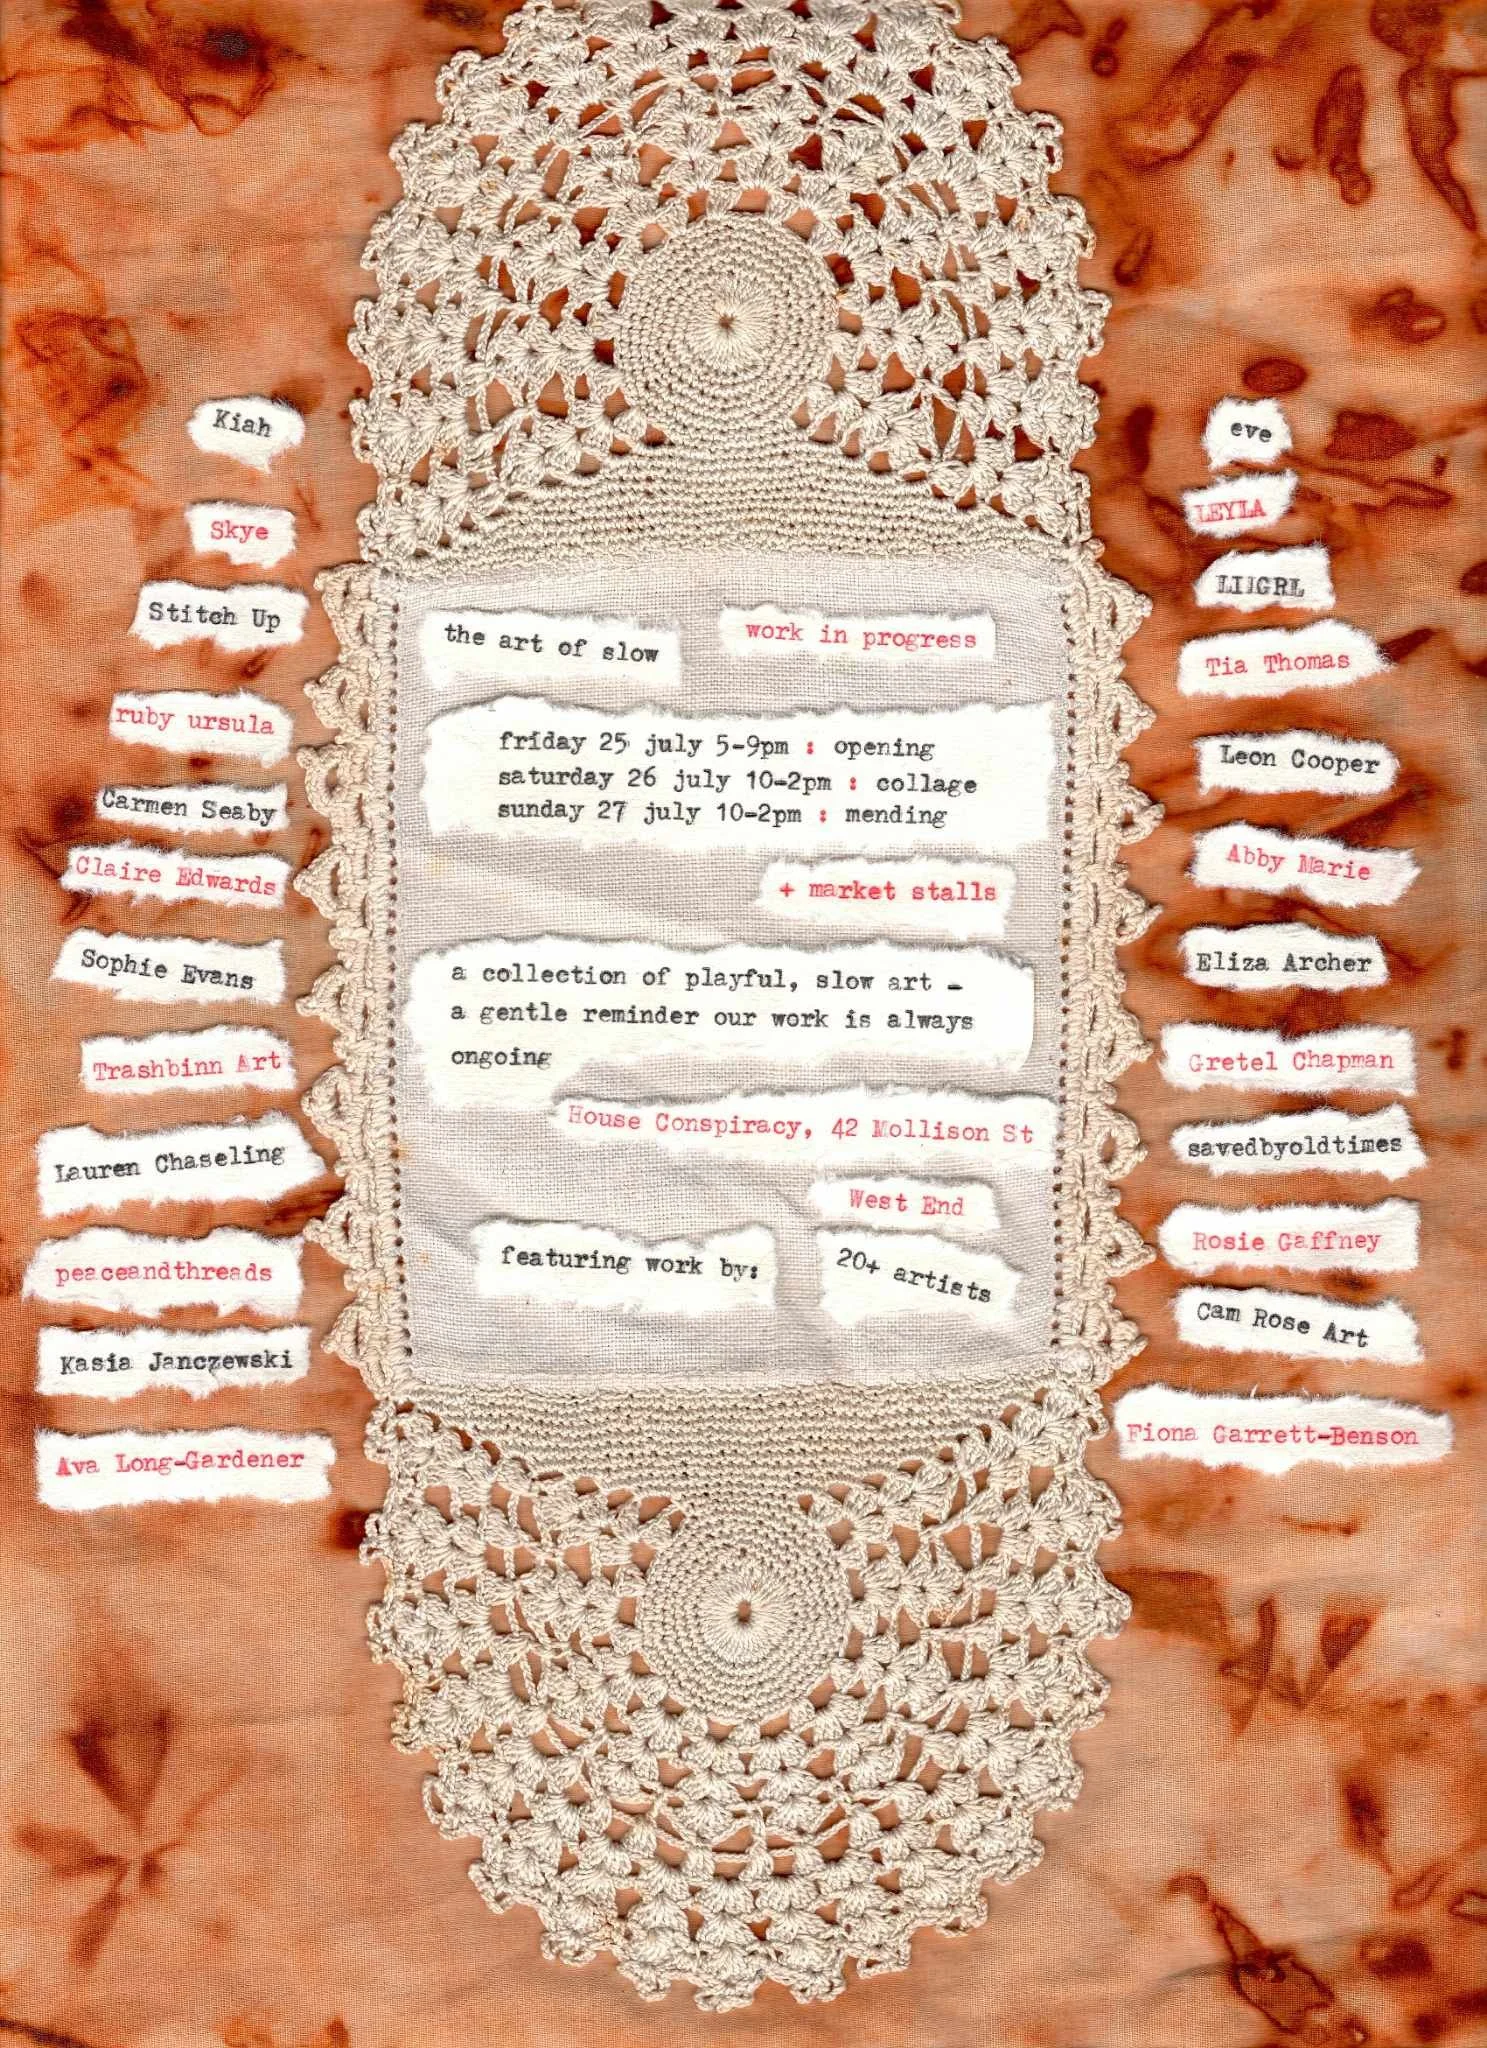 the art of slow
work in progress
friday 25 july 5-9pm : opening
saturday 26 july 10-2pm : collage
sunday 27 july 10-2pm : mending
+ market stalls
a collection of playful, slow art -
a gentle reminder our work is always
ongoing
House Conspiracy, 42 Mollison St
West End
featuring work by:
20+ artists
Kiah
Skye
Stitch Up
ruby ursula
Carmen Seaby
Claire Edwards
Sophie Evans
Trashbinn Art
Lauren Chaseling
peaceandthreads
Kasia Janczewski
Ava Long-Gardener
eve
LEYLA
Tia Thomas
Leon Cooper
Abby Marie
Eliza Archer
Gretel Chapman
savedbyoldtimes
Rosie Gaffney
Cam Rose Art
Fiona Garrett-Benson